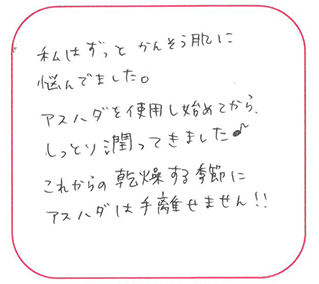 私はずっとかんそう肌に
悩んでました。
アスハダを使用し始めてから、
しっとり潤ってきました♪
これからの乾燥する季節に
アスハダは手離せません!!